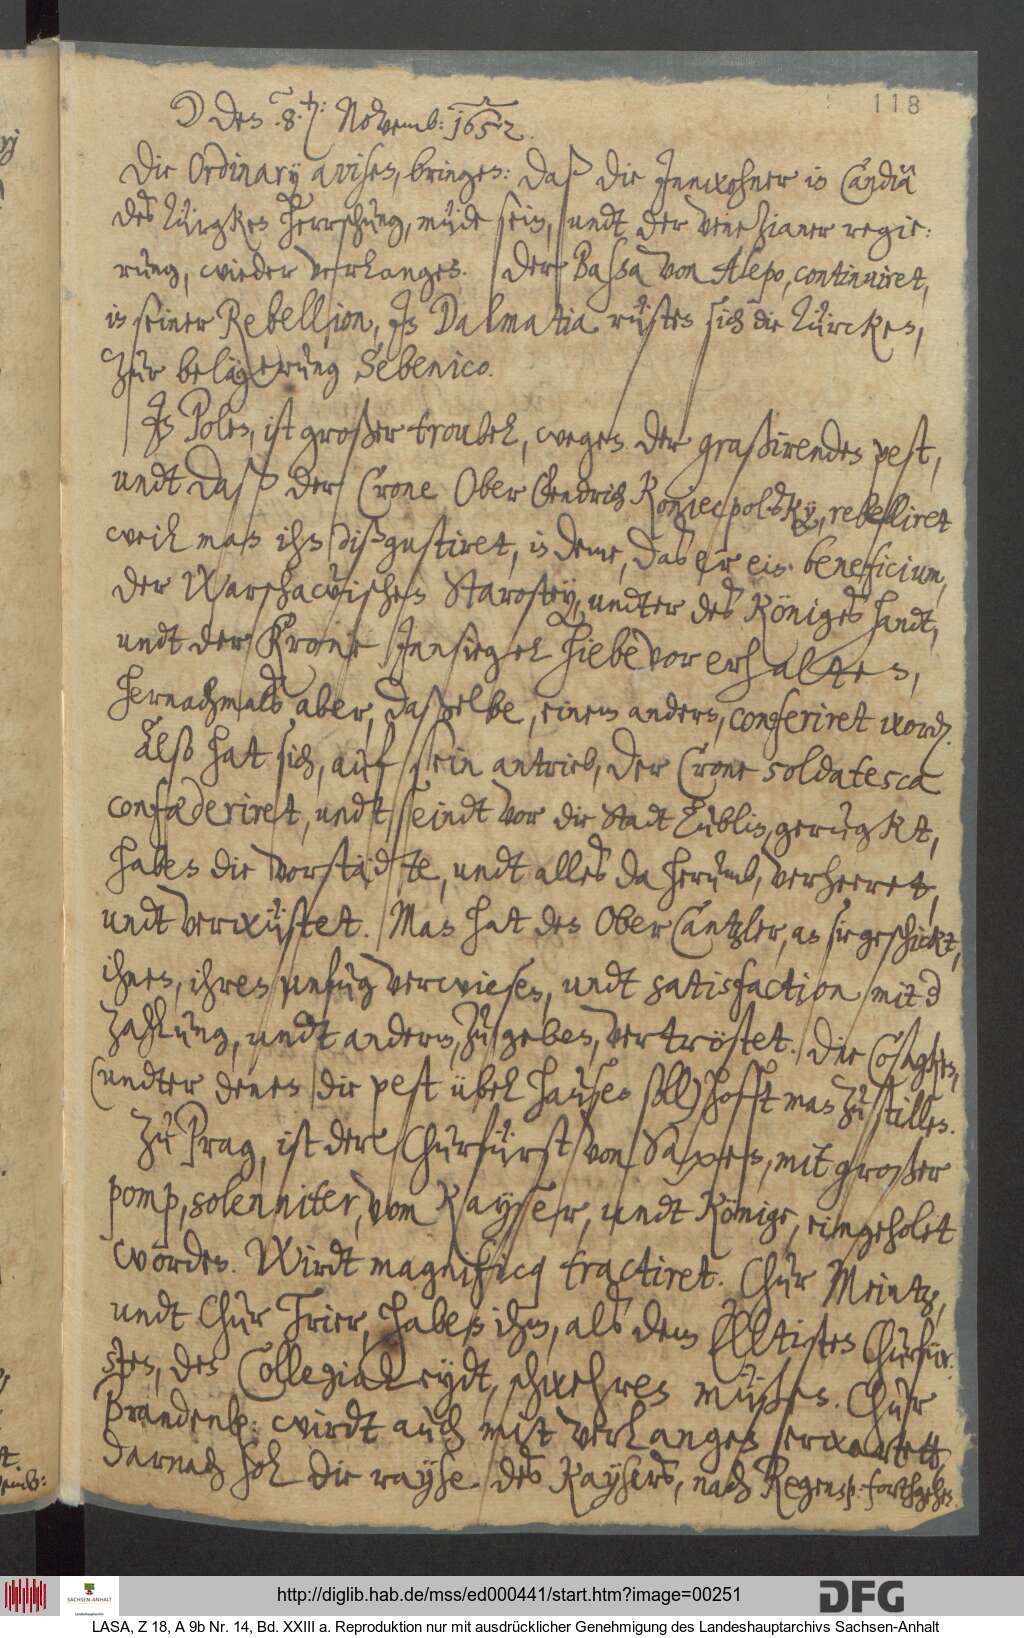 118
☽ den 8.t: Novemb: 1652.
Die Ordinarij avisen, bringen: daß die Innwohner in Candia
des Türgken Herrschung, müde sein, undt der Venezianer regie:
rung, wieder verlangen. Der Bassa von Alepo, continuiret,
in seiner Rebellion, In Dalmatia rüsten sich die Türcken,
zur belägerung Sebenico.
In Polen, ist großer troubel, wegen der graßirenden pest,
undt daß der Crone Ober Fendrich Koniecpolsky, rebelliret
weil man ihn disgustiret, in deme, das er ein beneficium,
der Warschawischen Starostey, undter des Königes handt,
undt der Krone Innsiegel hiebevor erhalten,
hernachmals aber, daßelbe, einem andern, conferiret word.
Alß hat sich, auf sein antrieb, der Crone soldatesca
confœderiret, undt seindt vor die Stadt Lublin, gerügkt,
haben die vorstädte, undt alles da herumb, verheeret,
undt verwüstet. Man hat den Ober Cantzler, an sie geschickt,
ihnen, ihren unfug verwiesen, undt satisfaction mit d
zahlung, undt anderm, zu geben, vertröstet. Die Cosagken,
(undter denen die pest übel hausen soll) hofft man zu stillen.
Zu Prag, ist der Churfürst von Saxen, mit großer
pomp, solenniter, vom Kayser, undt Könige, eingeholet
worden. Wirdt magnificq tractiret. Chur Meintz,
undt Chur Trier, haben ihm, als dem Elltisten Churfür:
sten, den Collegial eydt, schwehren müßen. Chur
Brandenb: wirdt auch mit verlangen erwartett,
darnach sol die rayse des Kaysers, nach Regensp: forthgehen.
http://diglib.hab.de/mss/ed000441/start.htm?image=00251
SACHSEN-ANHALT
DFG
LASA, Z 18, A 9b Nr. 14, Bd. XXIII a. Reproduktion nur mit ausdrücklicher Genehmigung des Landeshauptarchivs Sachsen-Anhalt